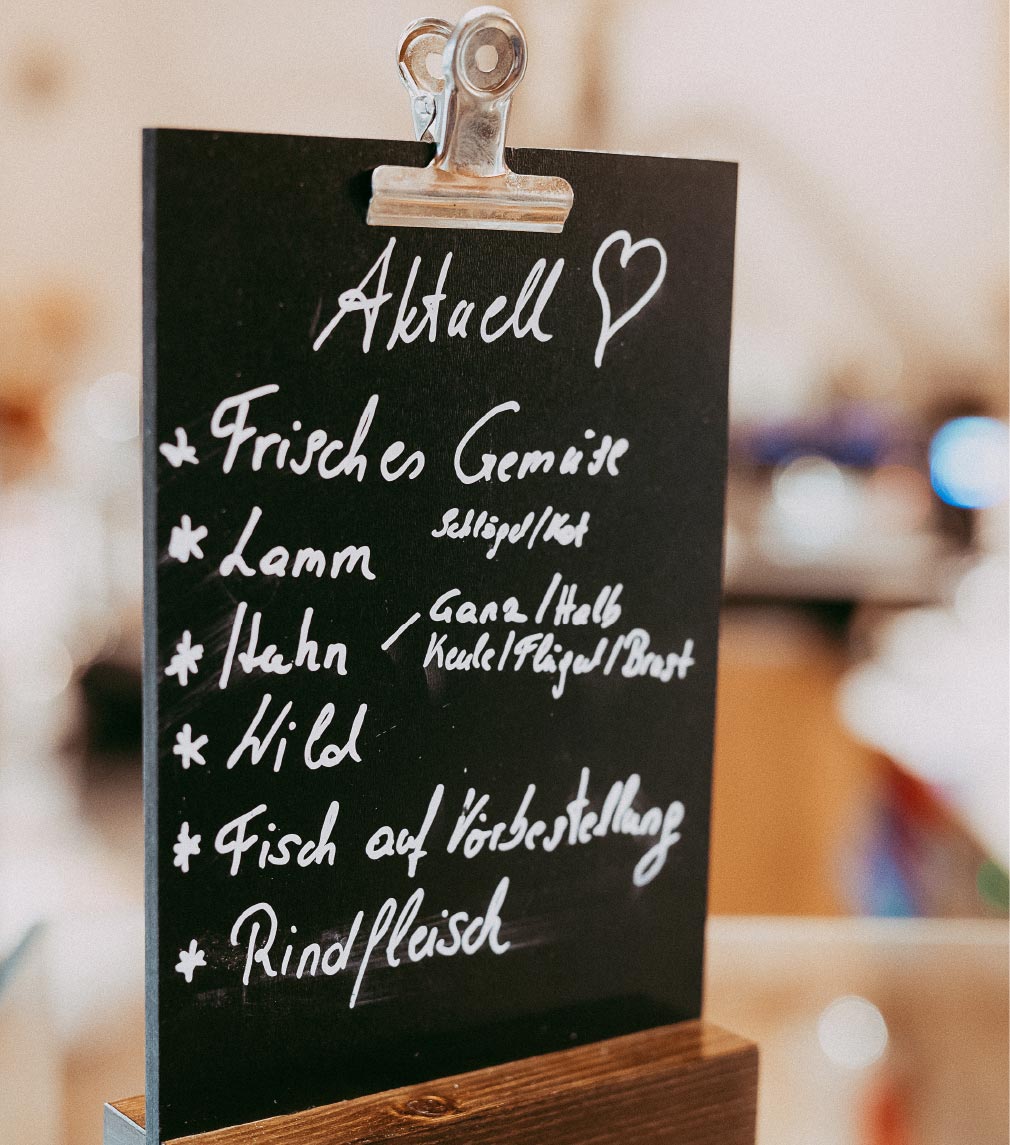 Aktuell
* Frisches Gemüse
* Lamm Schlögel/Kot
* Hahn Ganz/Halb
Keule/Flügel/Brust
* Wild
* Fisch auf Vorbestellung
* Rindfleisch